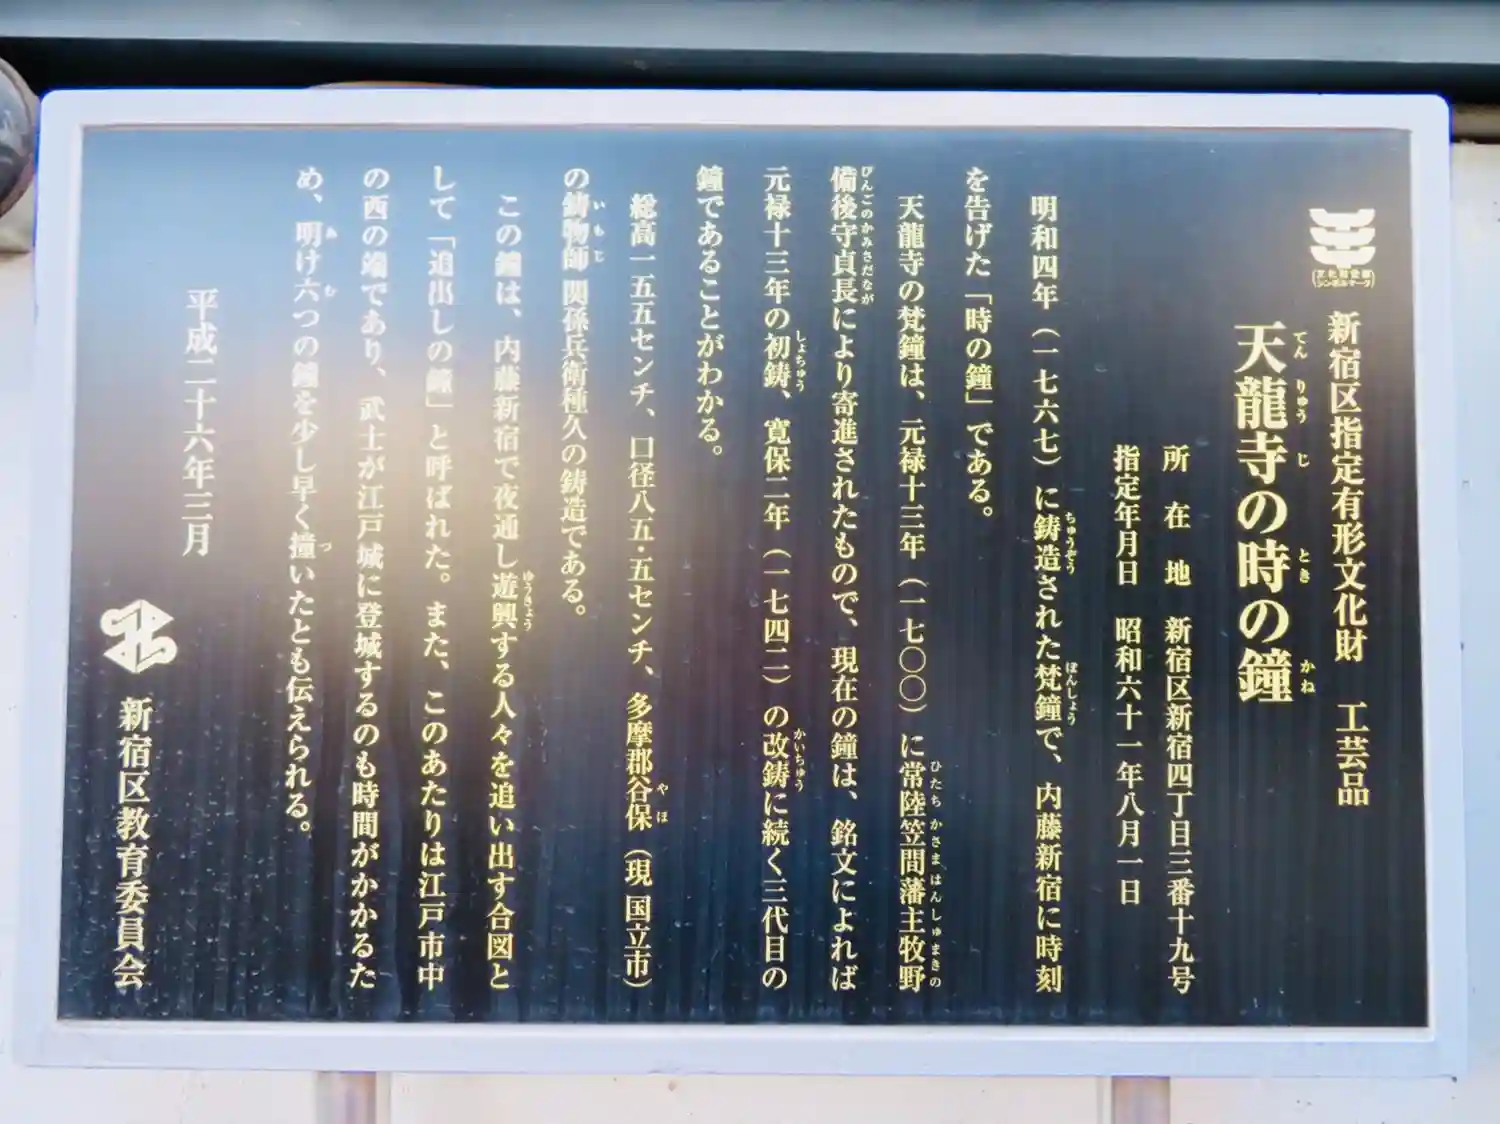 文化財愛護
シンボルマーク
新宿区指定有形文化財　工芸品
天龍寺の時の鐘
てんりゅうじ　とき　かね
所在地　新宿区新宿四丁目三番十九号
指定年月日　昭和六十一年八月一日
明和四年（一七六七）に鋳造された梵鐘で、内藤新宿に時刻
ちゅうぞう　ぼんしょう
を告げた「時の鐘」である。
天龍寺の梵鐘は、元禄十三年（一七〇〇）に常陸笠間藩主牧野
ひたちかさまはんしゅまきの
備後守貞長により寄進されたもので、現在の鐘は、銘文によれば
びんごのかみさだなが
元禄十三年の初鋳、寛保二年（一七四二）の改鋳に続く三代目の
しょちゅう　かいちゅう
鐘であることがわかる。
総高一五五センチ、口径八五・五センチ、多摩郡谷保（現 国立市）
やほ
の鋳物師 関係兵衛種久の鋳造である。
いもじ
この鐘は、内藤新宿で夜通し遊興する人々を追い出す合図と
ゆうきょう
して「追出しの鐘」と呼ばれた。また、このあたりは江戸市中
の西の端であり、武士が江戸城に登城するのも時間がかかるた
め、明け六つの鐘を少し早く撞いたとも伝えられる。
あ　む　つ
平成二十六年三月
新宿区教育委員会